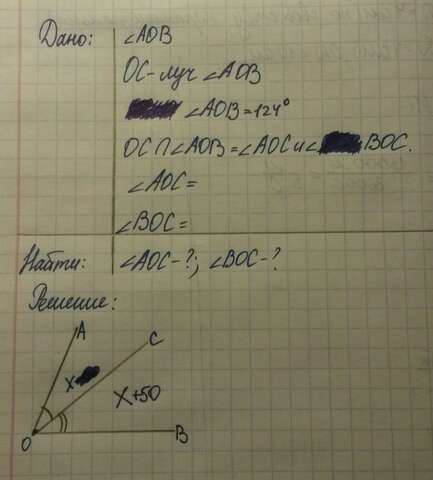 Дано: ∠AOB
OC-луч ∠AOB
∠AOB=124°
OC∩∠AOB=∠AOC и ∠ BOC.
∠AOC=
∠BOC=
Найти: ∠AOC-?; ∠BOC-?
Решение:
A
C
x
x+50
O
B